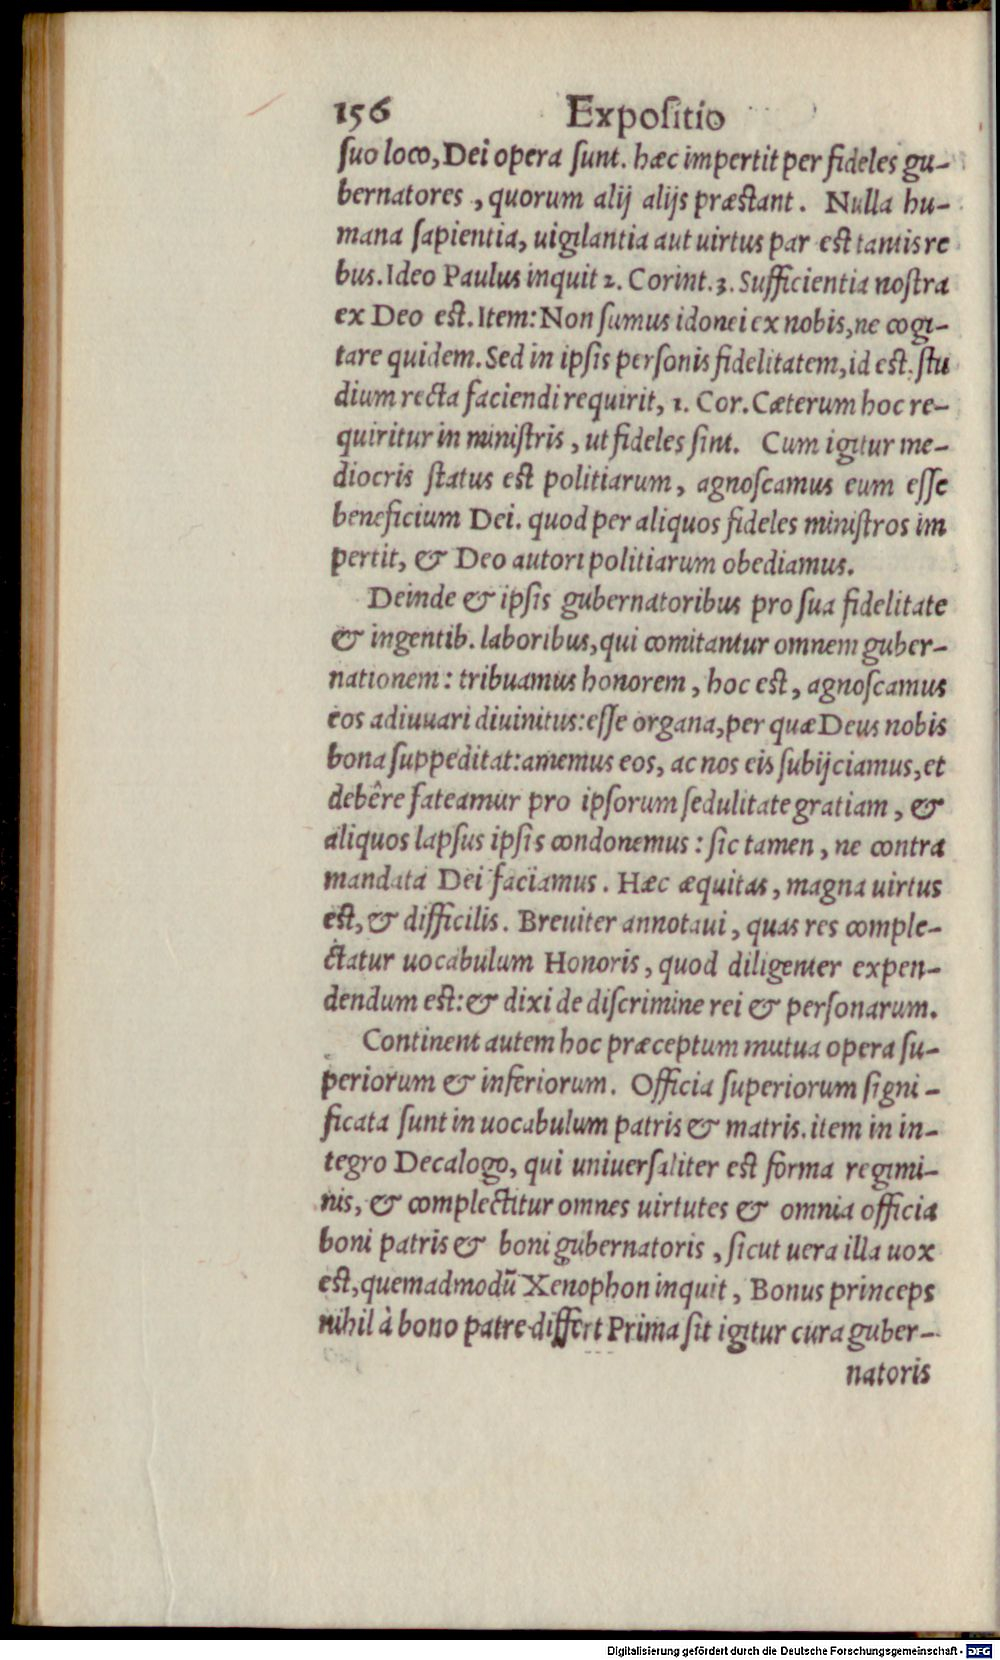 156 Expoſitio
ſuo loco, Dei opera ſunt. hæc impertit per fideles gu-
bernatores, quorum alij alijs præstant. Nulla hu-
mana ſapientia, uigilantia aut uirtus par est tantis re
bus. Ideo Paulus inquit 2. Corint. 3. Sufficientia noſtra
ex Deo est. Item: Non ſumus idonei ex nobis, ne cogi-
tare quidem. Sed in ipſis perſonis fidelitatem, id est. ſtu
dium recta faciendi requirit, 1. Cor. Cæterum hoc re-
quiritur in miniſtris, ut fideles ſint. Cum igitur me-
diocris ſtatus est politiarum, agnoſcamus eum eſſe
beneficium Dei. quod per aliquos fideles miniſtros im
pertit, & Deo autori politiarum obediamus.
Deinde & ipſis gubernatoribus pro ſua fidelitate
& ingentib. laboribus, qui comitantur omnem guber-
nationem: tribuamus honorem, hoc est, agnoſcamus
eos adiuuari diuinitus: eſſe organa, per quæ Deus nobis
bona ſuppeditat: amemus eos, ac nos eis ſubijciamus, et
debêre fateamur pro ipſorum ſedulitate gratiam, &
aliquos lapſus ipſis condonemus: ſic tamen, ne contra
mandata Dei faciamus. Hæc æquitas, magna uirtus
est, & difficilis. Breuiter annotaui, quas res comple-
ctatur uocabulum Honoris, quod diligenter expen-
dendum est: & dixi de diſcrimine rei & perſonarum.
Continent autem hoc præceptum mutua opera ſu-
periorum & inferiorum. Officia ſuperiorum ſigni-
ficata ſunt in uocabulum patris & matris. item in in-
tegro Decalogo, qui uniuerſaliter est forma regimi-
nis, & complectitur omnes uirtutes & omnia officia
boni patris & boni gubernatoris, ſicut uera illa uox
est, quemadmodũ Xenophon inquit, Bonus princeps
nihil à bono patre differt Prima ſit igitur cura guber-
natoris
Digitalisierung gefördert durch die Deutsche Forschungsgemeinschaft - DFG